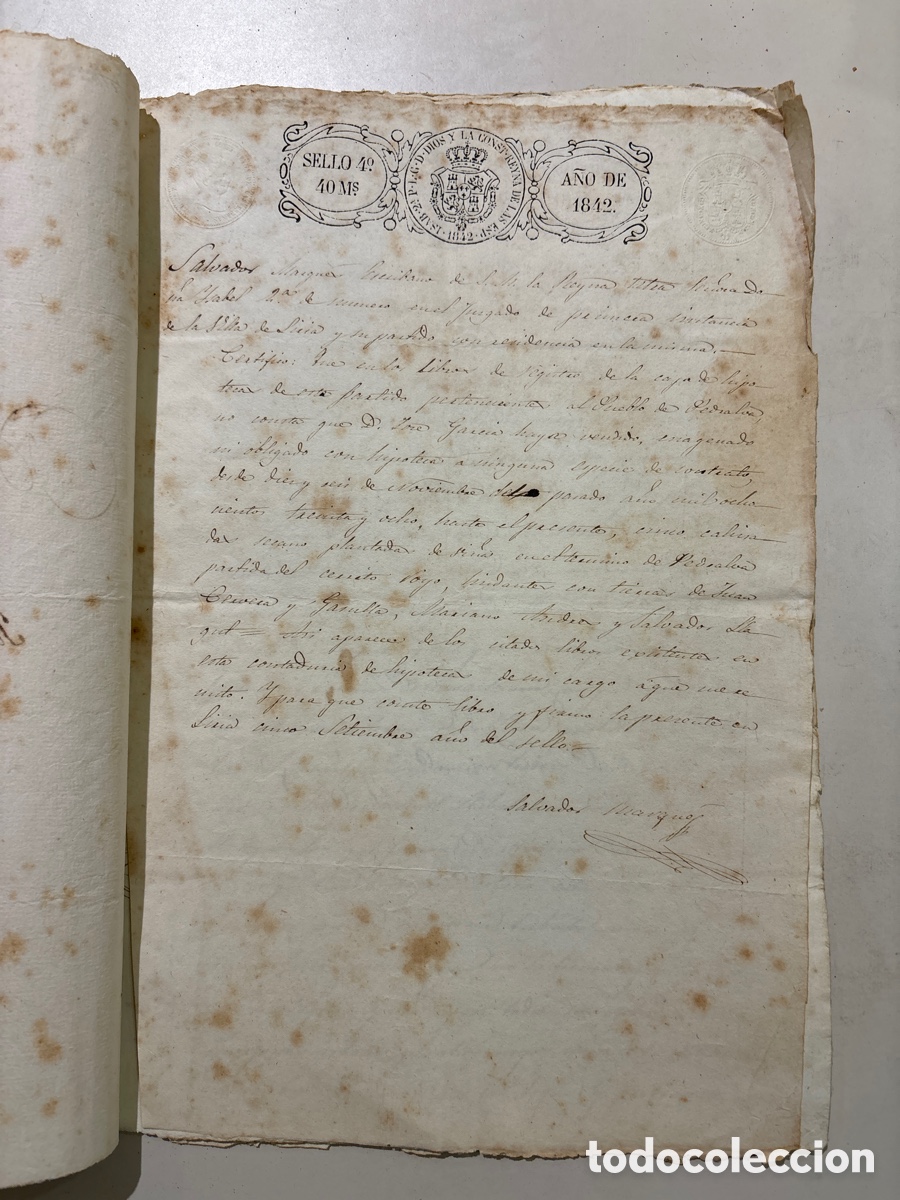 SELLO 4º
40 Ms
ISAB. 2ª P. L. G. D. DIOS Y LA CONST. REYNA DE LAS ESP. 1842
AÑO DE
1842.
Salvador Marques Escribano de S.M. la Reyna Ntra Señora Do
ña Ysabel 2ª de numero en el Juzgado de primera instancia
de la Villa de Liria y su partido con residencia en la misma.
Certifico: Que en los Libros de registro de la caja de hipo
tecas de este partido pertenecientes al Pueblo de Pedralva,
no consta que D. Jose Garcia haya vendido, enagenado
ni obligado con hipoteca a ninguna especie de contrato,
desde diez y seis de Noviembre del pasado año mil ocho
cientos treinta y ocho, hasta el presente, cinco cahiza
das secano plantadas de viña en el termino de Pedralva
partida del cerrito royo, lindantes con tierras de Juan
Cervera y Mariano y Salvador
Asi aparece de los citados libros existentes en
esta contaduria de hipotecas de mi cargo a que me re
mito. Y para que conste libro y firmo la presente en
Liria cinco Setiembre año del sello.=
Salvador Marques
todocoleccion